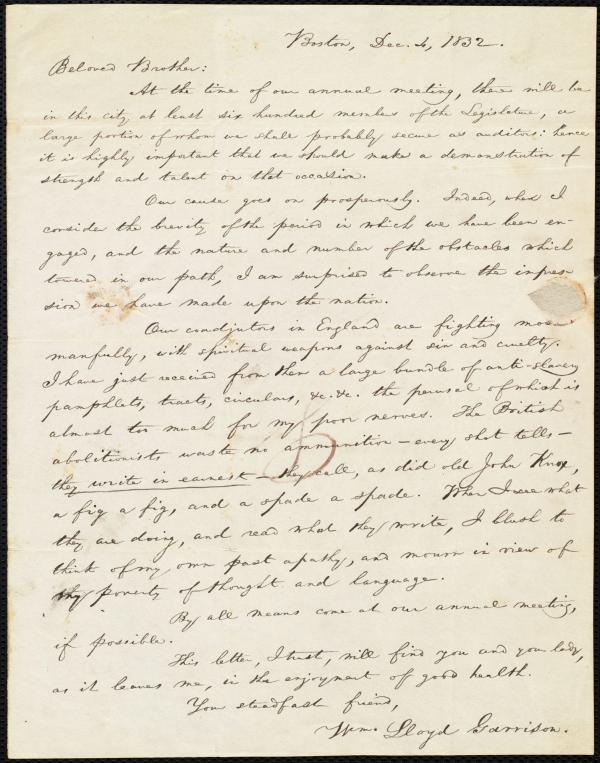 Boston, Dec. 4, 1832.
Beloved Brother:
At the time of our annual meeting, there will be
in this city at least six hundred members of the Legislature, a
large portion of whom we shall probably secure as auditors: hence
it is highly important that we should make a demonstration of
strength and talent on that occasion.
Our cause goes on prosperously. Indeed, when I
consider the brevity of the period in which we have been en-
gaged, and the nature and number of the obstacles which
towered in our path, I am surprised to observe the impres-
sion we have made upon the nation.
Our coadjutors in England are fighting most
manfully, with spiritual weapons against sin and cruelty.
I have just received from them a large bundle of anti-slavery
pamphlets, tracts, circulars, &c. &c. the perusal of which is
almost too much for my poor nerves. The British
abolitionists waste no ammunition – every shot tells –
they write in earnest – they call, as did old John Knox,
a fig a fig, and a spade a spade. When I see what
they are doing, and read what they write, I blush to
think of my own past apathy, and mourn in view of
my poverty of thought and language.
By all means come at our annual meeting,
if possible.
This letter, I trust, will find you and your lady,
as it leaves me, in the enjoyment of good health.
Your steadfast friend,
Wm. Lloyd Garrison.